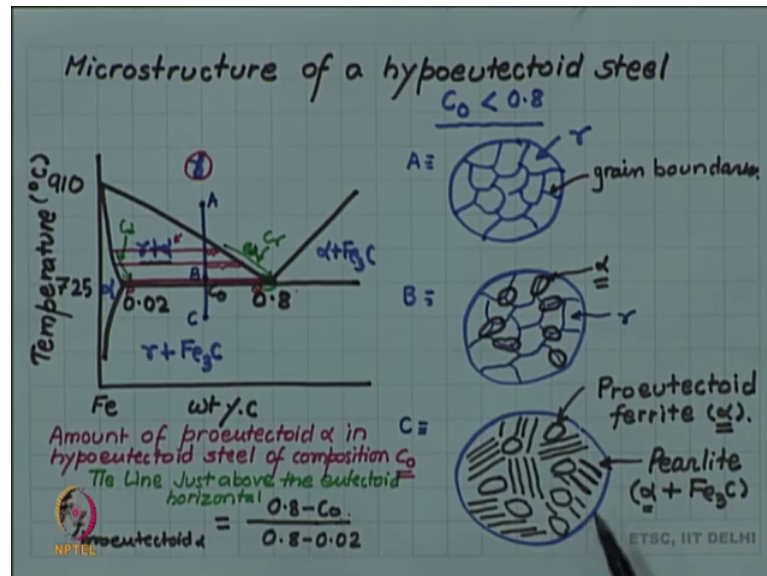 Microstructure of a hypoeutectoid steel
C₀ < 0.8
A ≡
γ
grain boundaries.
910
γ
A
Cα
γ+α
Cγ
α+Fe₃C
725
α
B
0.02
C₀
0.8
C
γ+Fe₃C
Temperature (°C)
Fe
wt%.C
B ≡
α
γ
C ≡
Proeutectoid
ferrite (α).
Pearlite
(α + Fe₃C)
Amount of proeutectoid α in
hypoeutectoid steel of composition C₀
Tie Line Just above the eutectoid
horizontal
proeutectoid α = 0.8-C₀.
0.8-0.02
NPTEL
ETSC, IIT DELHI